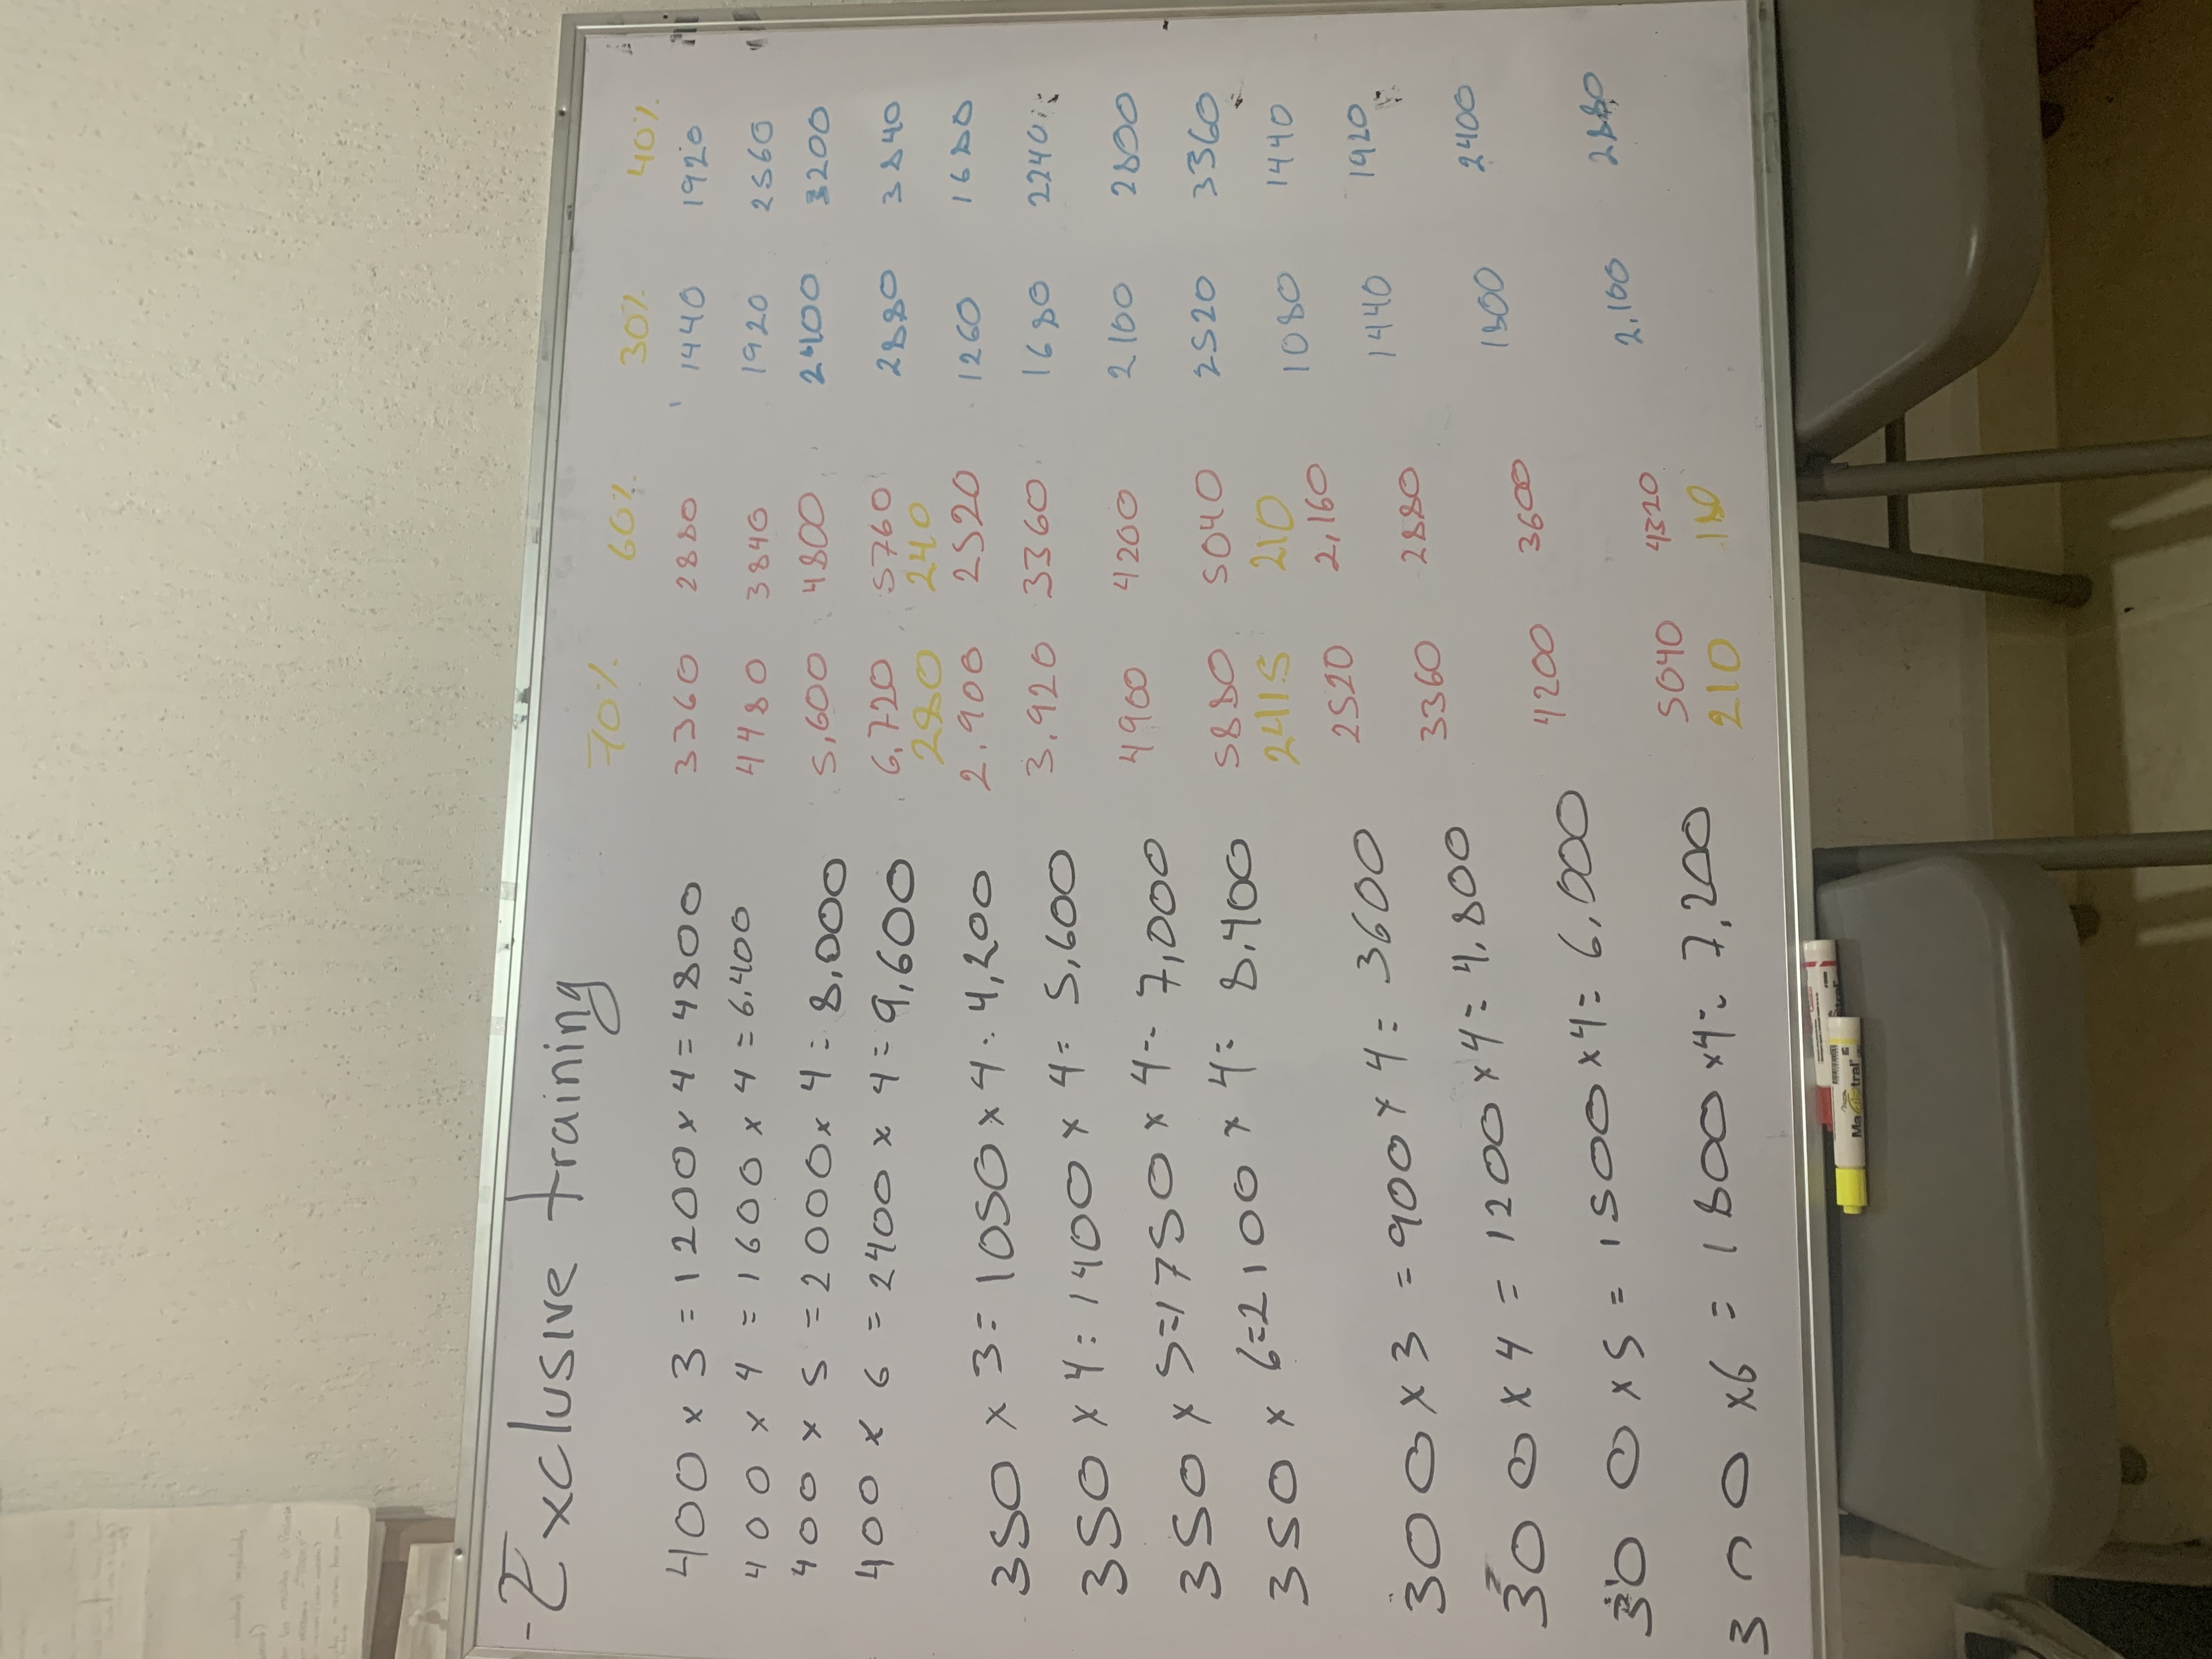 - Exclusive training
70% 60% 30% 40%
400 x 3 = 1200 x 4 = 4800 3360 2880 1440 1920
400 x 4 = 1600 x 4 = 6.400 4480 3840 1920 2560
400 x 5 = 2000 x 4 = 8,000 5,600 4800 2400 3200
400 x 6 = 2400 x 4 = 9,600 6,720 5760 2880 3840
280 240
350 x 3 = 1050 x 4 = 4,200 2.900 2520 1260 1680
350 x 4 = 1400 x 4 = 5,600 3.920 3360 1680 2240
350 x 5 = 1750 x 4 = 7,000 4900 4200 2100 2800
350 x 6 = 2100 x 4 = 8,400 5880 5040 2520 3360
2415 210
300 x 3 = 900 x 4 = 3600 2520 2,160 1080 1440
300 x 4 = 1200 x 4 = 4,800 3360 2880 1440 1920
300 x 5 = 1500 x 4 = 6,000 4200 3600 1800 2400
300 x 6 = 1800 x 4 = 7,200 5040 4320 2,100 2880
210 180